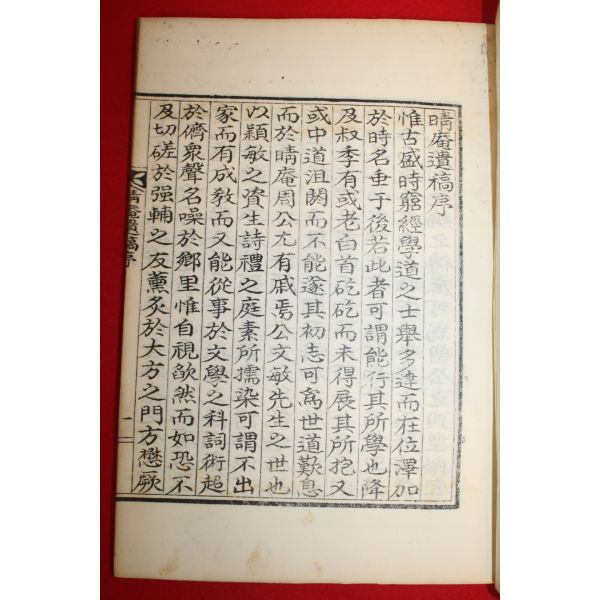 晴庵遺稿序
惟古盛時窮經學道之士舉多達而在位澤加
於時名垂于後若此者可謂能行其所學也降
及叔季有或老白首矻矻而未得展其所抱又
或中道沮閼而不能遂其初志可爲世道歎息
而於晴庵周公尤有戚焉公文敏先生之世也
以穎敏之資生詩禮之庭素所擩染可謂不出
家而有成敎而又能從事於文學之科詞術超
於儕衆聲名噪於鄕里惟自視欿然而如恐不
及切磋於强輔之友薰炙於大方之門方懋厥
晴庵遺稿序
一